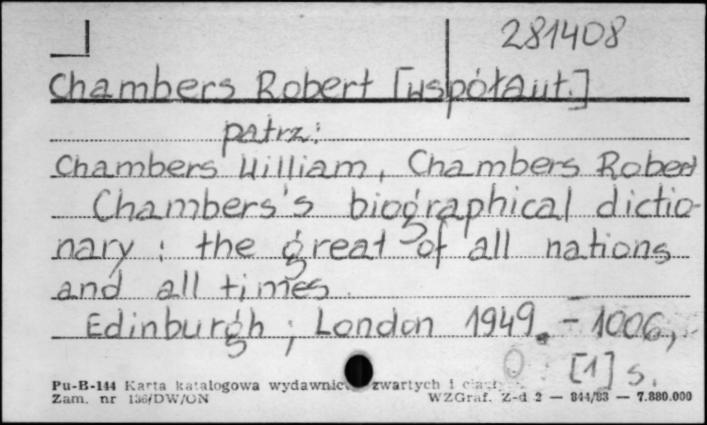 281408
Chambers Robert [współaut.]
patrz:
Chambers William, Chambers Robert
Chambers's biographical dictio-
nary : the great of all nations
and all times.
Edinburgh ; London 1949. - 1006,
[1] s.
Pu-B-144 Karta katalogowa wydawnictw zwartych i
Zam. nr 136/DW/ON WZGraf. Z-d 2 — 844/83 — 7.880.000